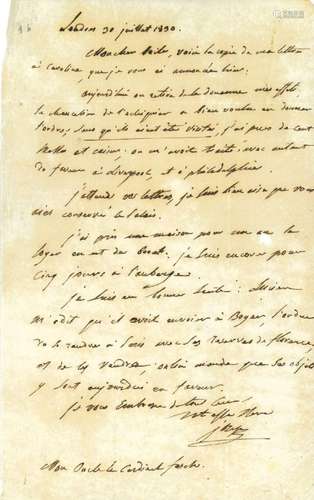 Londres 30 juillet 1830.
Mon cher Oncle, voici la copie de ma lettre
à Caroline que je vous ai annoncée hier.
aujourd'hui on retire de la douanne mes effets
le chancelier de l'echiquier a bien voulu en donner
l'ordre, sans qu'ils aient été visités, j'ai près de cent
malles et caisses: on m'avait traité avec autant
de faveur à Liverpool et à philadelphie.
j'attends vos lettres, je suis bien aise que vous
ayez conservé le palais.
j'ai pris une maison pour un an le
loyer en est de
je suis encore pour
cinq jours à l'auberge.
je suis en bonne santé: Lucien
m'a dit qu'il avait envoyé à Boyer, l'ordre
de se rendre à Paris avec ses oeuvres de florence
et de les vendre, on lui mande que ses objets
y sont aujourd'hui en faveur.
je vous embrasse de tout coeur
Mon Oncle le Cardinal fesch.